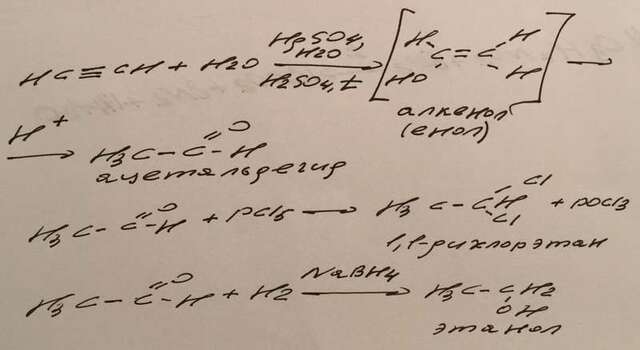 HC≡CH + H2O HgSO4, H2O H2SO4, t [H HO C=C H H] →
алкенол
(енол)
H+ → H3C-C=O-H
ацетальдегид
H3C-C=O-H + PCl5 → H3C-CH Cl Cl + POCl3
1,1-дихлорэтан
H3C-C=O-H + H2 NaBH4 → H3C-CH2 OH
этанол